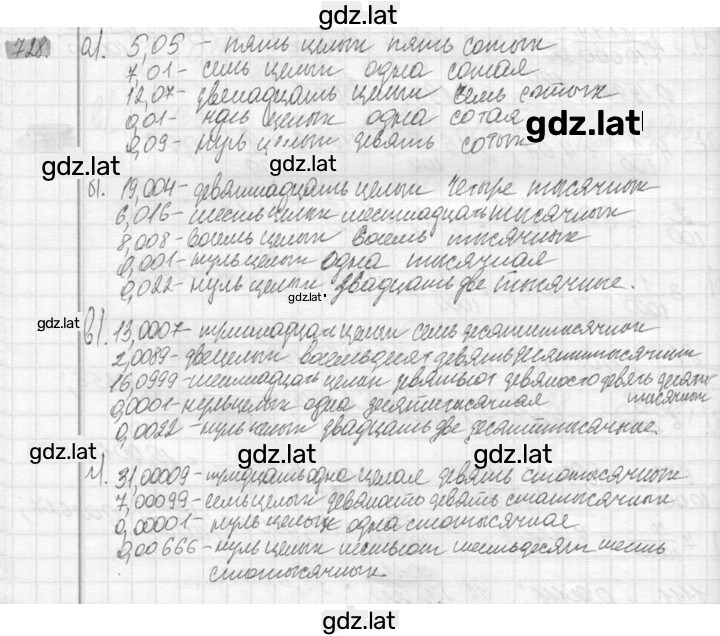 gdz.lat
728. а). 5,05 - пять целых пять сотых
7,01 - семь целых одна сотая
12,07 - двенадцать целых семь сотых
0,01 - ноль целых одна сотая
gdz.lat
0,09 - нуль целых девять сотых
gdz.lat
б). 19,004 - девятнадцать целых четыре тысячных
6,016 - шесть целых шестнадцать тысячных
8,008 - восемь целых восемь тысячных
0,001 - нуль целых одна тысячная
0,022 - нуль целых двадцать две тысячные.
gdz.lat
gdz.lat
в). 13,0007 - тринадцать целых семь десятитысячных
2,0089 - две целых восемьдесят девять десятитысячных
16,0999 - шестнадцать целых девятьсот девяносто девять десяти
тысячных
0,0001 - нуль целых одна десятитысячная
0,0022 - нуль целых двадцать две десятитысячные.
gdz.lat gdz.lat
г). 31,00009 - тридцать одна целая девять стотысячных
7,00099 - семь целых девяность девять стотысячных
0,00001 - нуль целых одна стотысячная
0,00666 - нуль целых шестьсот шестьдесят шесть
стотысячных.
gdz.lat